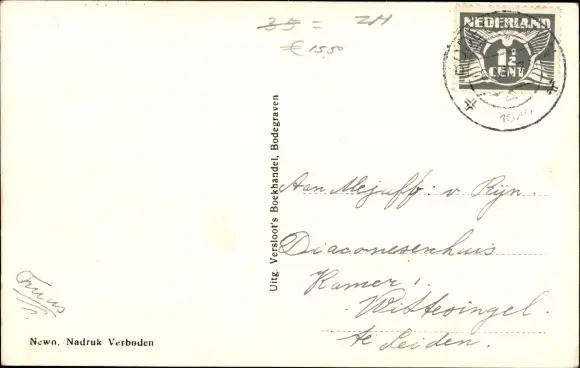 35 = ZH
€ 15,50
NEDERLAND
1½
CENT
1940
Uitg. Versloot's Boekhandel, Bodegraven
Aan Mejuff: v Rijn.
Diaconesenhuis
Kamer 1
Wittesingel.
te Leiden.
Newo, Nadruk Verboden